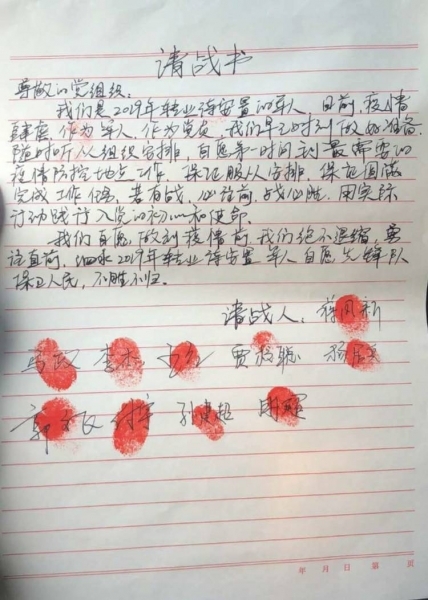 请战书
尊敬的党组织:
我们是2019年转业待安置的军人,目前疫情
肆虐,作为军人,作为党员,我们早已时刻做好准备
随时听从组织安排,自愿第一时间到最需要的
疫情防控地点工作,保证服从安排,保证圆满
完成工作任务,若有战,必往前,战必胜,用实际
行动践行入党的初心和使命.
我们自愿做到疫情前,我们绝不退缩,勇
往直前,泗水2019年转业待安置军人自愿先锋队
保卫人民,不胜不归.
请战人:
孙建超
年 月 日 第 页